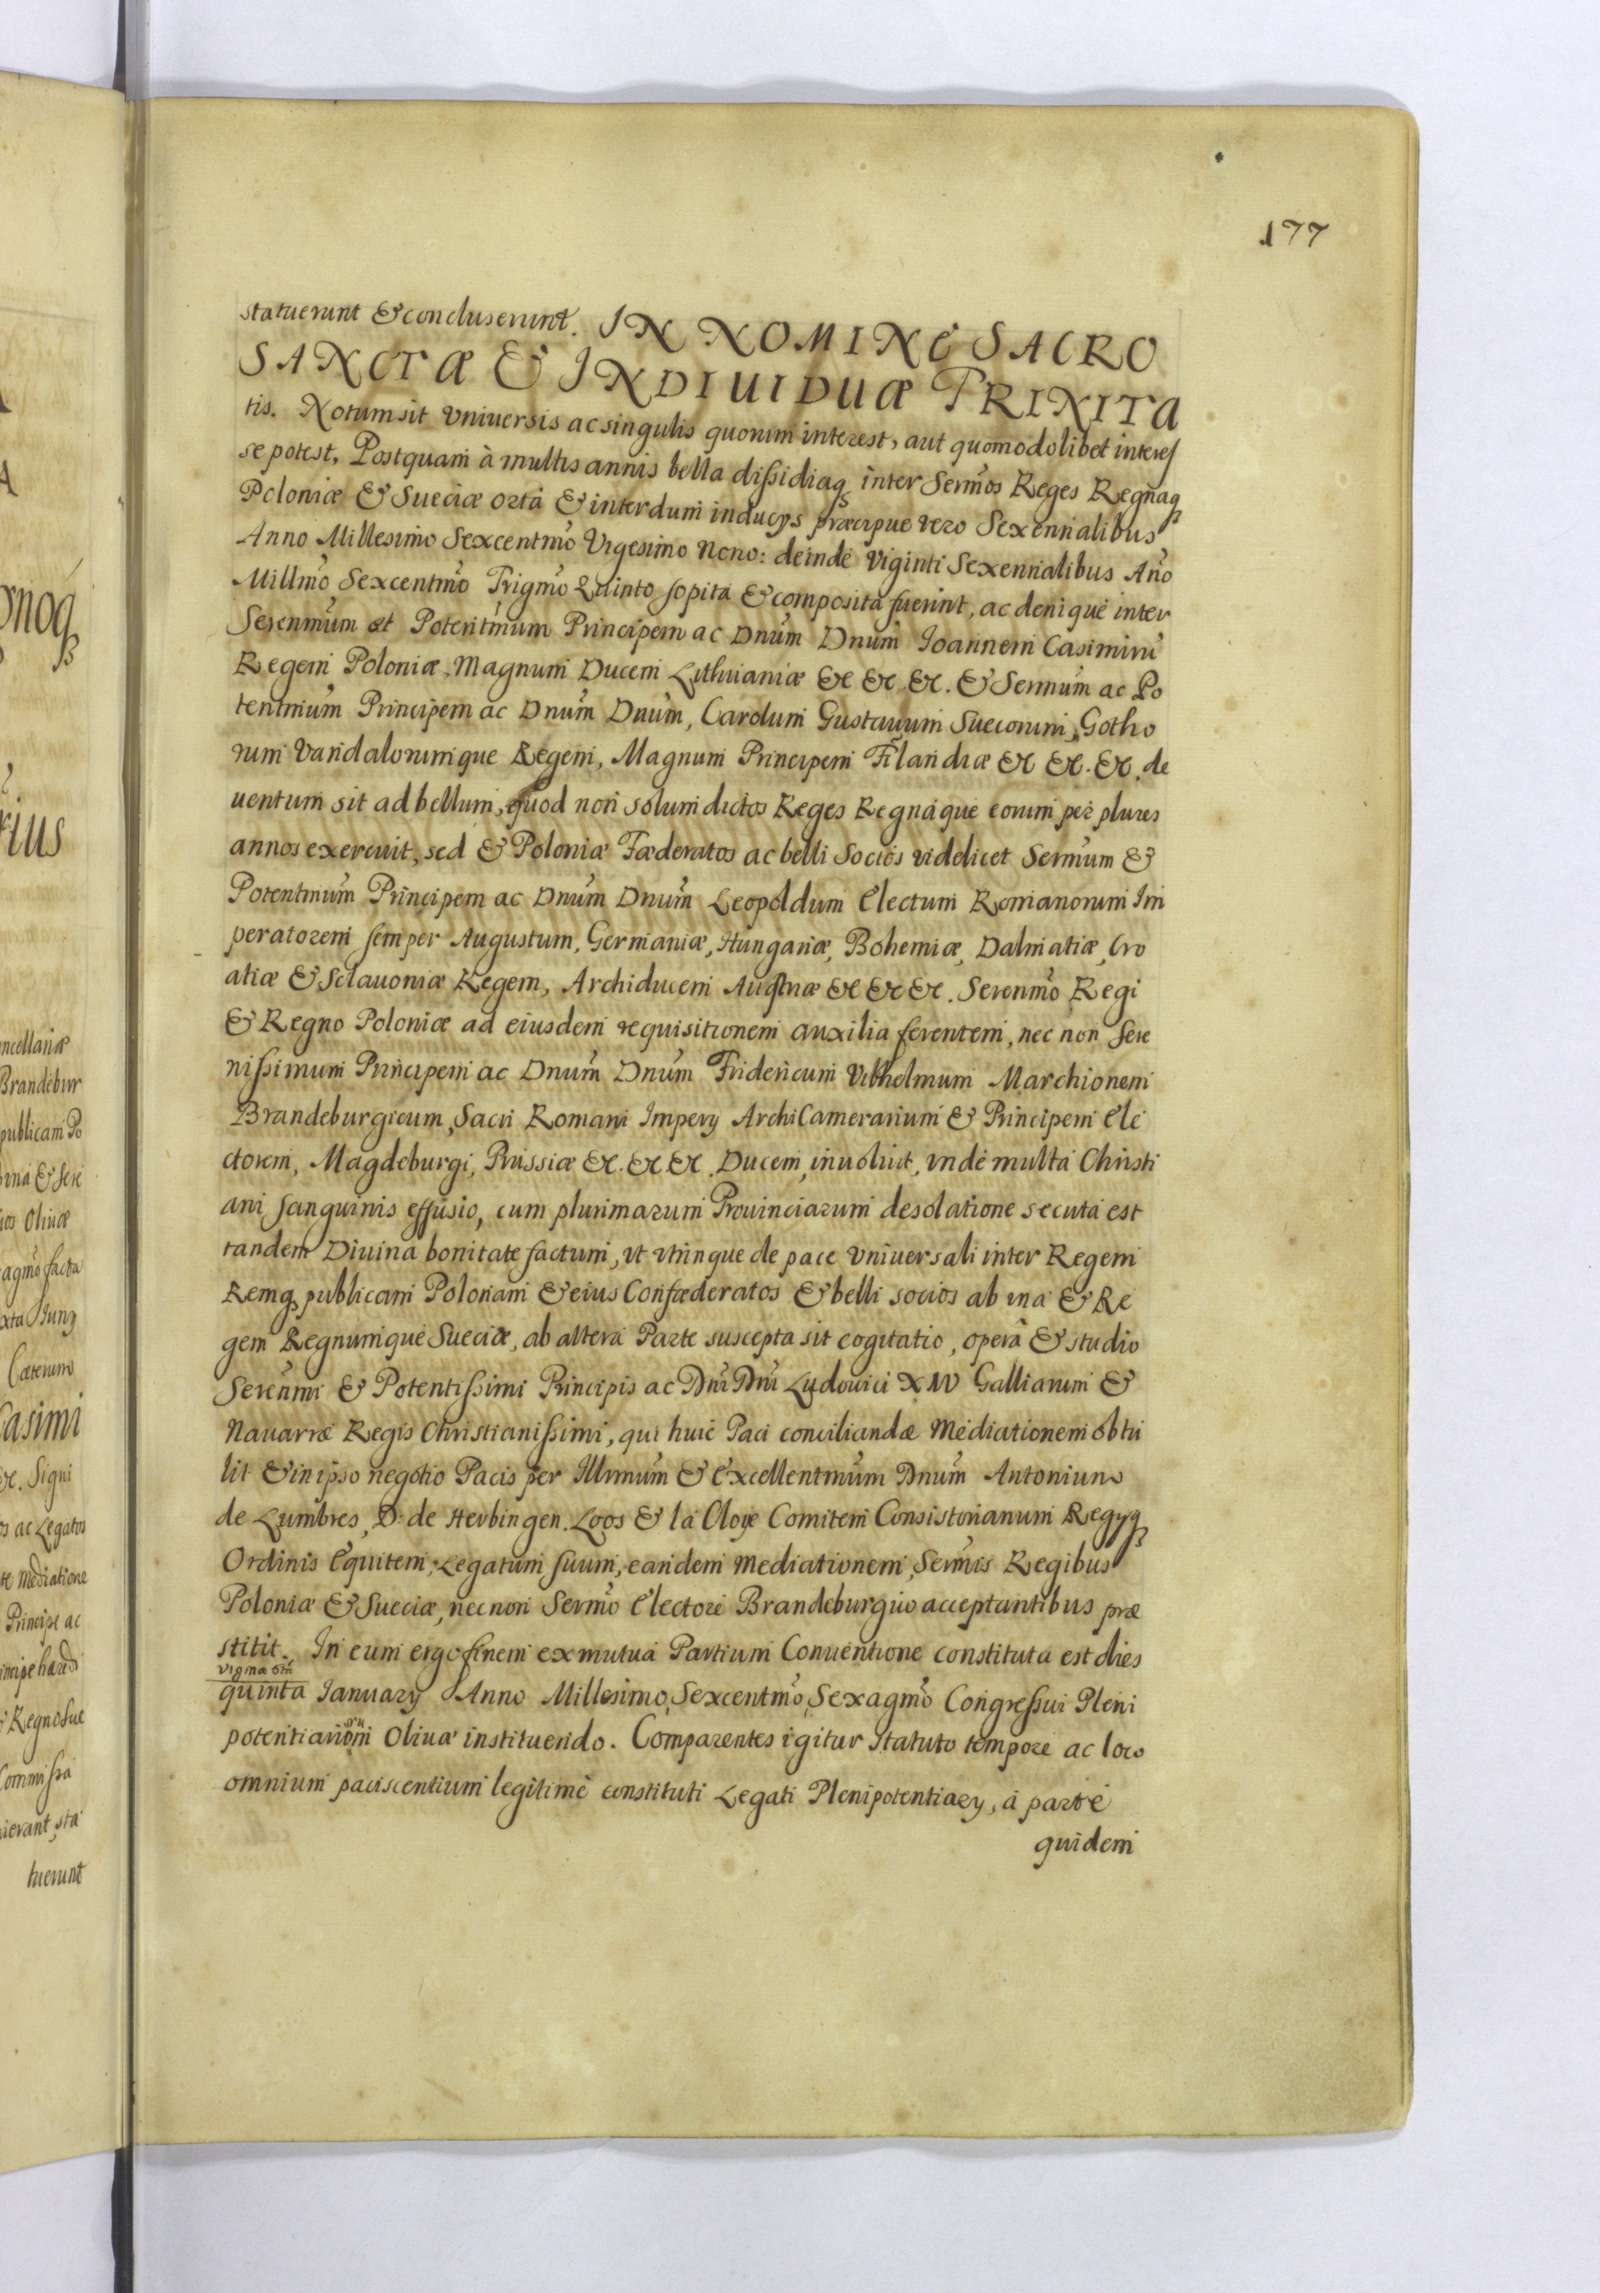 177
statuerunt & concluserunt. IN NOMINE SACRO
SANCTÆ & INDIVIDUÆ TRINITA
tis. Notum sit Vniuersis ac singulis quorum interest, aut quomodolibet interes
se potest, Postquam à multis annis bella dissidiaq inter Sermos Reges Regnaq
Poloniæ & Sueciæ orta & interdum inducijs præcipue vero Sexennalibus
Anno Millesimo Sexcentmo Vigesimo Nono: deinde Viginti Sexennalibus Año
Millmo Sexcentmo Trigmo Quinto sopita & composita fuerint, ac denique inter
Serenmum et Potentmum Principem ac Dnum Dnum Ioannem Casimirū
Regem Poloniæ, Magnum Ducem Lithuaniæ &c &c &c. & Sermum ac Po
tentmum Principem ac Dnum Dnum, Carolum Gustauum Suecorum, Gotho
rum Vandalorumque Regem, Magnum Principem Filandiæ &c &c. &c. de
uentum sit ad bellum, quod non solum dictos Reges Regnaque eorum per plures
annos exercuit, sed & Poloniæ Fæderatos ac belli Socios videlicet Sermum &
Potentmum Principem ac Dnum Dnum Leopoldum Electum Romanorum Im
peratorem semper Augustum, Germaniæ, Hungariæ, Bohemiæ, Dalmatiæ, Cro
atiæ & Sclauoniæ Regem, Archiducem Austriæ &c &c &c. Serenmo Regi
& Regno Poloniæ ad eiusdem requisitionem auxilia ferentem, nec non Sere
nissimum Principem ac Dnum Dnum Fridericum Vilhelmum Marchionem
Brandeburgicum, Sacri Romani Imperij ArchiCamerarium & Principem Ele
ctorem, Magdeburgi, Prussiæ &c. &c &c. Ducem, inuoluit, vnde multa Christi
ani sanguinis effusio, cum plurimarum Prouinciarum desolatione secuta est
tandem Diuina bonitate factum, vt vtrinque de pace vniuersali inter Regem
Remq publicam Polonam & eius Confœderatos & belli socios ab vna & Re
gem Regnumque Sueciæ, ab altera Parte suscepta sit cogitatio, operâ & studio
Serenmi & Potentissimi Principis ac Dni Dni Ludouici XIV Galliarum &
Nauarræ Regis Christianissimi, qui huic Paci conciliandæ Mediationem obtu
lit & in ipso negotio Pacis per Illrmum & Excellentmum Dnum Antonium
de Lumbres, D: de Herbingen. Loos & la Cloye Comitem Consistorianum Regijq
Ordinis Equitem, Legatum suum, eandem mediationem, Sermis Regibus
Poloniæ & Sueciæ, nec non Sermo Electore Brandeburgico acceptantibus præ
stitit. In eum ergo finem ex mutua Partium Conuentione constituta est dies
quinta Ianuarij Anno Millesimo, Sexcentmo, Sexagmo Congressui Pleni
potentiariorum Oliuæ instituendo. Comparentes igitur Statuto tempore ac loco
omnium paciscentium legitimè constituti Legati Plenipotentiarij, à parte
quidem